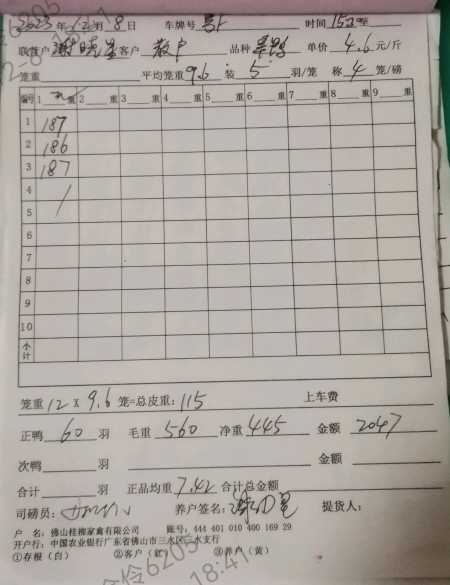 2023年12月8日 车牌号 时间
联营户 客户 散户 品种 单价 4.6元/斤
笼重 平均笼重9.6 装5羽/笼 称4笼/磅
编号 1 重 2 重 3 重 4 重 5 重 6 重 7 重 8 重 9 重
1 187
2 186
3 187
4
5
6
7
8
9
10
小计
笼重12×9.6笼=总皮重:115 上车费
正鸭60羽 毛重560 净重445 金额2047
次鸭 羽 金额
合计 羽 正品均重7.42 合计总金额
司磅员: 养户签名: 提货人:
户 名:佛山桂柳家禽有限公司 账号:444 401 010 400 169 29
开户行:中国农业银行广东省佛山市三水区三水支行
①存根(白) ②客户(红) ③养户(黄)
18:41